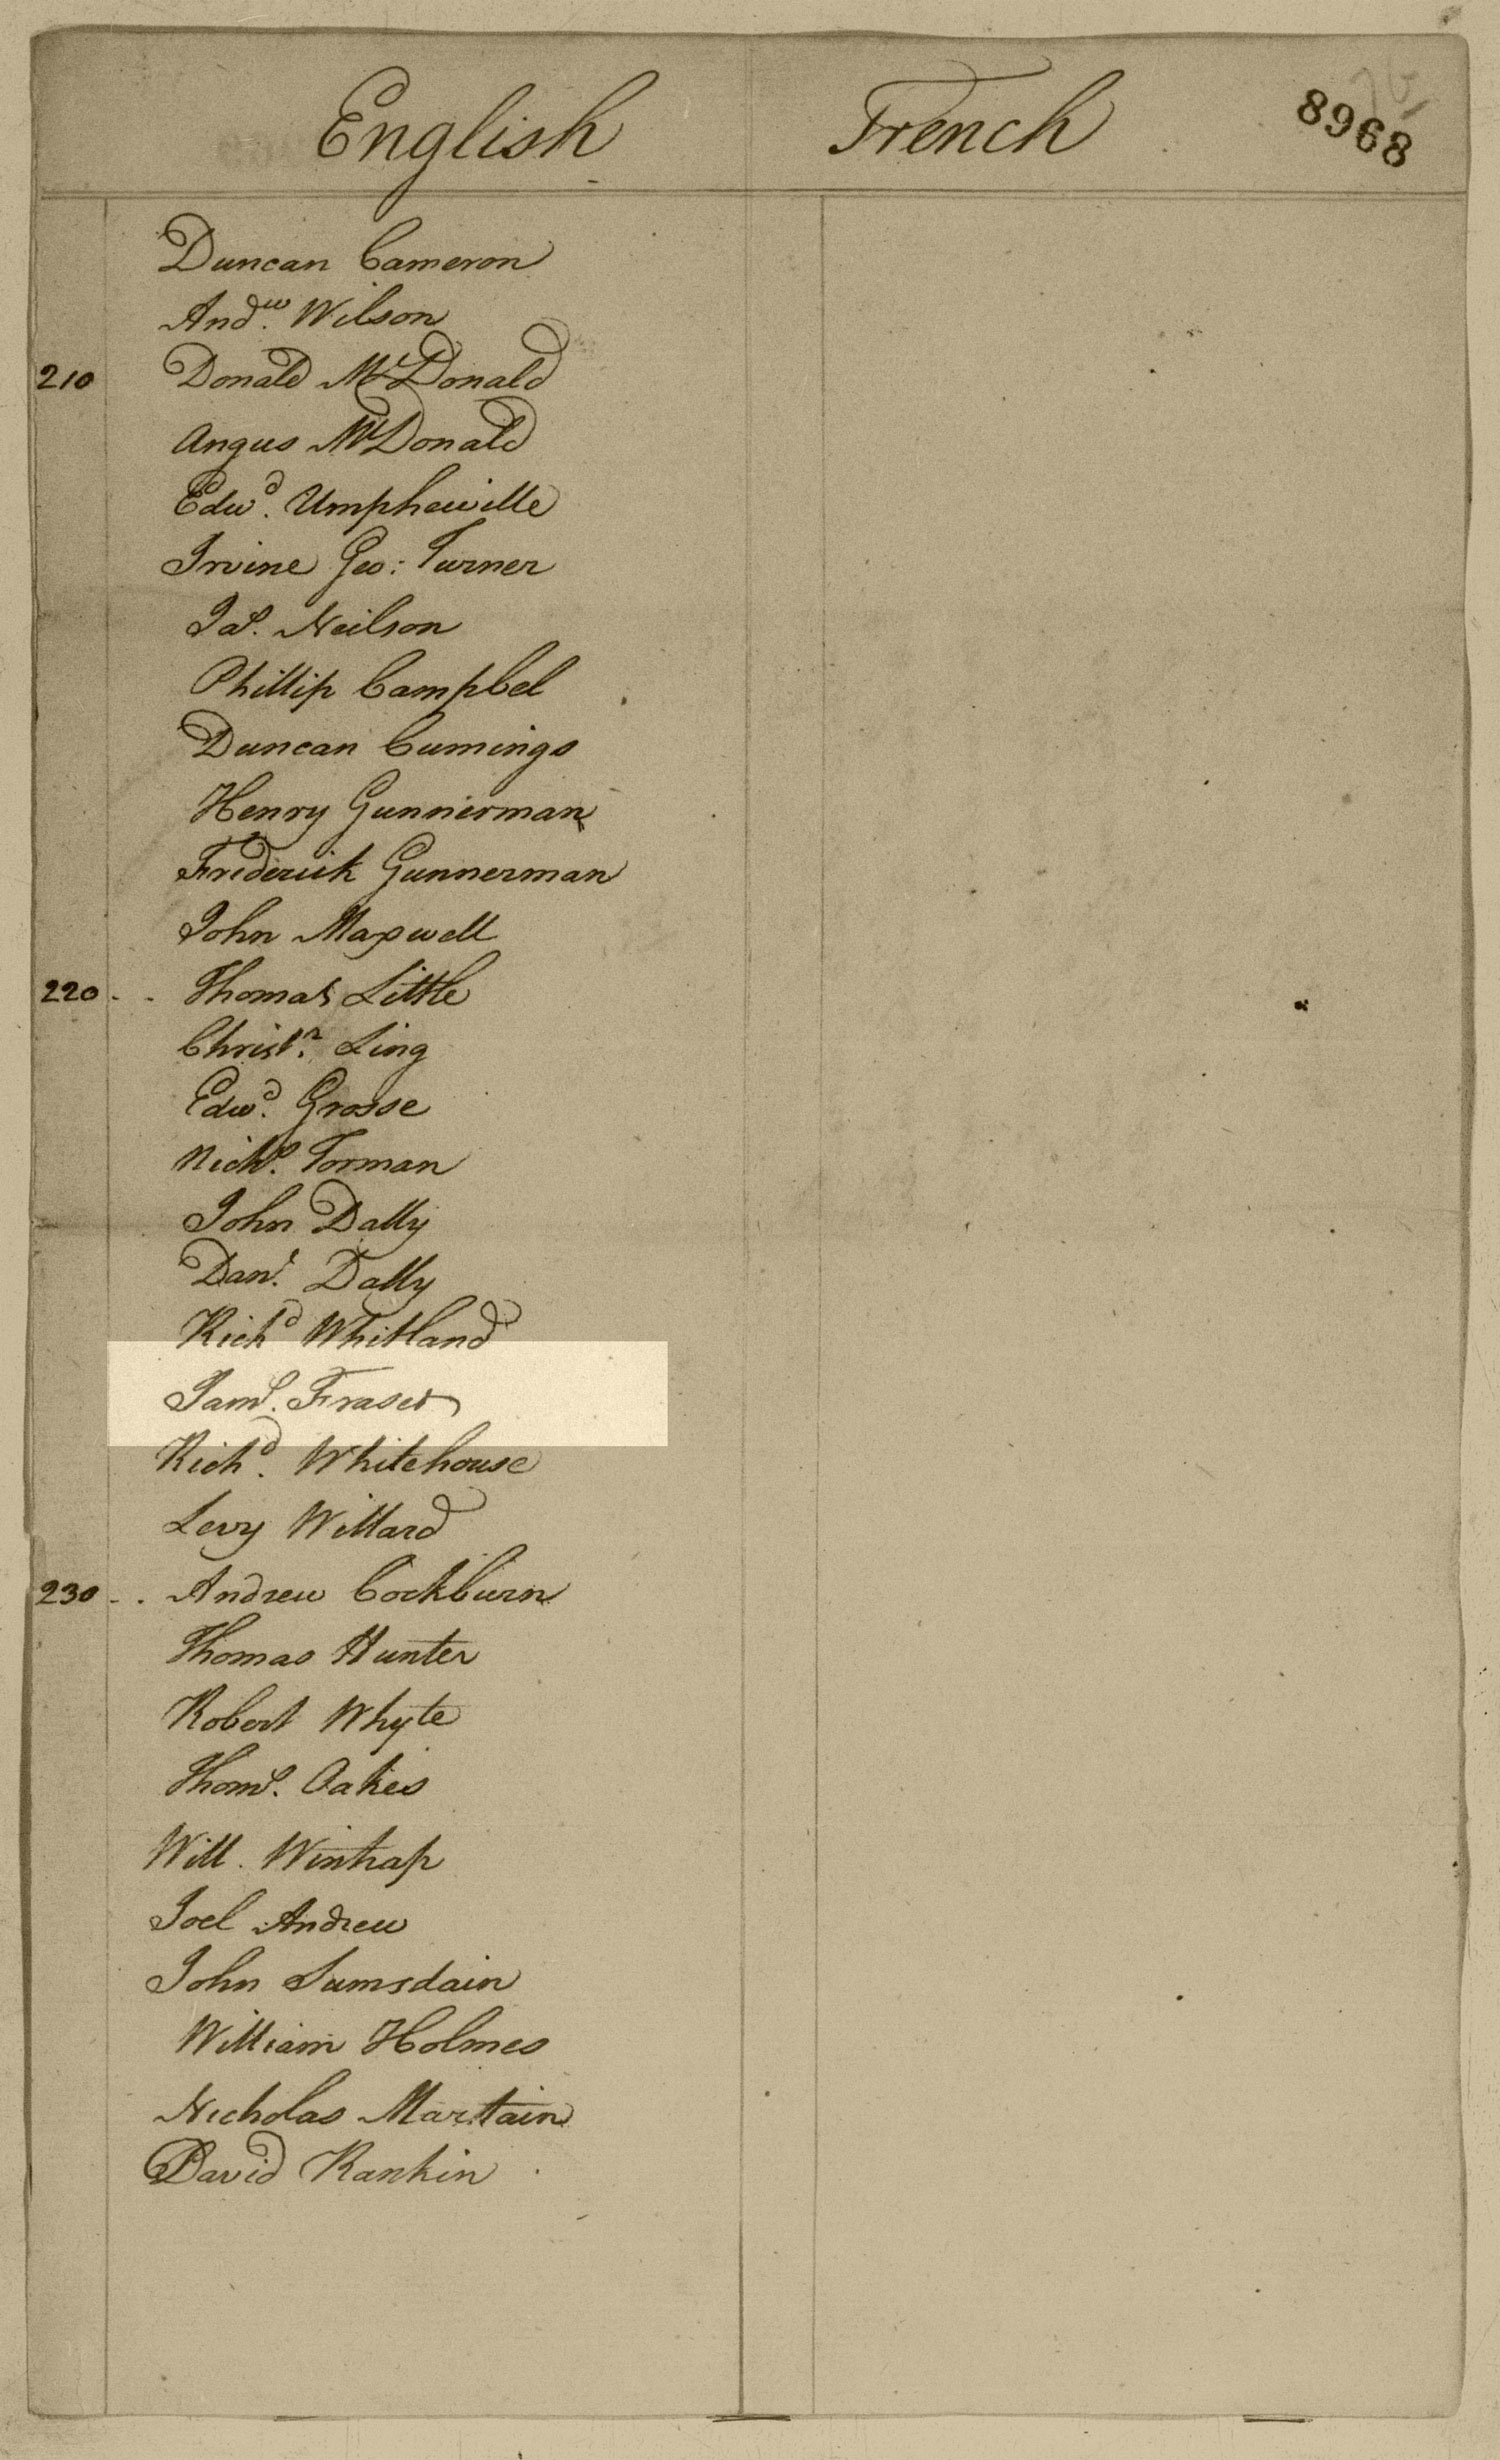 English French 8968
Duncan Cameron
Andw. Wilson
210 Donald McDonald
Angus McDonald
Edwd. Umpheville
Irvine Geo: Turner
Jas. Neilson
Phillip Campbel
Duncan Cumings
Henry Gunnerman
Frederick Gunnerman
John Maxwell
220 Thomas Little
Christr. Ling
Edwd. Grosse
Nichs. Torman
John Dally
Danl. Dally
Richd Whitland
Jams. Fraser
Richd. Whitehouse
Levy Willard
230 Andrew Cockburn
Thomas Hunter
Robert Whyte
Thoms. Oakes
Will. Wintrap
Joel Andrew
John Lumsdain
William Holmes
Nicholas Martain
David Rankin